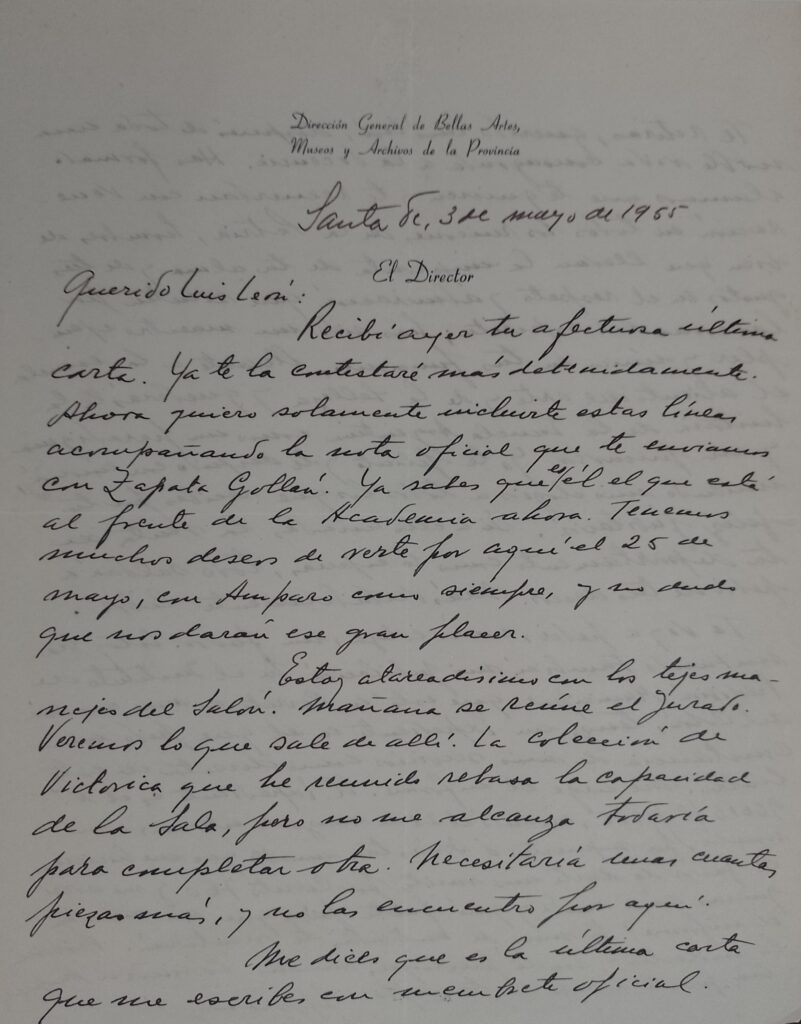 Dirección General de Bellas Artes,
Museos y Archivos de la Provincia
Santa Fe, 3 de mayo de 1955
El Director
Querido Luis León:
Recibí ayer tu afectuosa última
carta. Ya te la contestaré más detenidamente.
Ahora quiero solamente incluirte estas líneas
acompañando la nota oficial que te enviamos
con Zapata Gollán. Ya sabes que es él el que está
al frente de la Academia ahora. Tenemos
muchos deseos de verte por aquí el 25 de
mayo, con Amparo como siempre, y no dudo
que nos darán ese gran placer.
Estoy atareadísimo con los tejes ma-
nejes del Salón. Mañana se reúne el Jurado.
Veremos lo que sale de allí. La colección de
Victorica que he reunido rebasa la capacidad
de la Sala, pero no me alcanza todavía
para completar otra. Necesitaría unas cuantas
piezas más, y no las encuentro por aquí.
Me dices que es la última carta
que me escribes con membrete oficial.